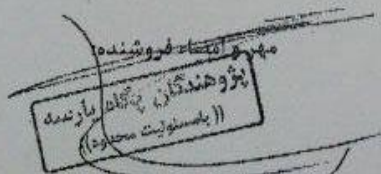 مهر و امضاء فروشنده:
پژوهندگان پگاه پارسه
((بامسئولیت محدود))